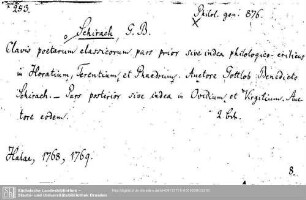 *283.
Philol. gen. 876.
Schirach, G. B.
Clavis poetarum classicorum pars prior sive index philologico-criticus
in Horatium, Terentium, et Phaedrum. Auctore Gottlob Benedicto
Schirach. – Pars posterior sive index in Ovidium, et Virgilium. Auc-
tore eodem.
Halae, 1768, 1769.
8.
Sächsische Landesbibliothek -
Staats- und Universitätsbibliothek Dresden